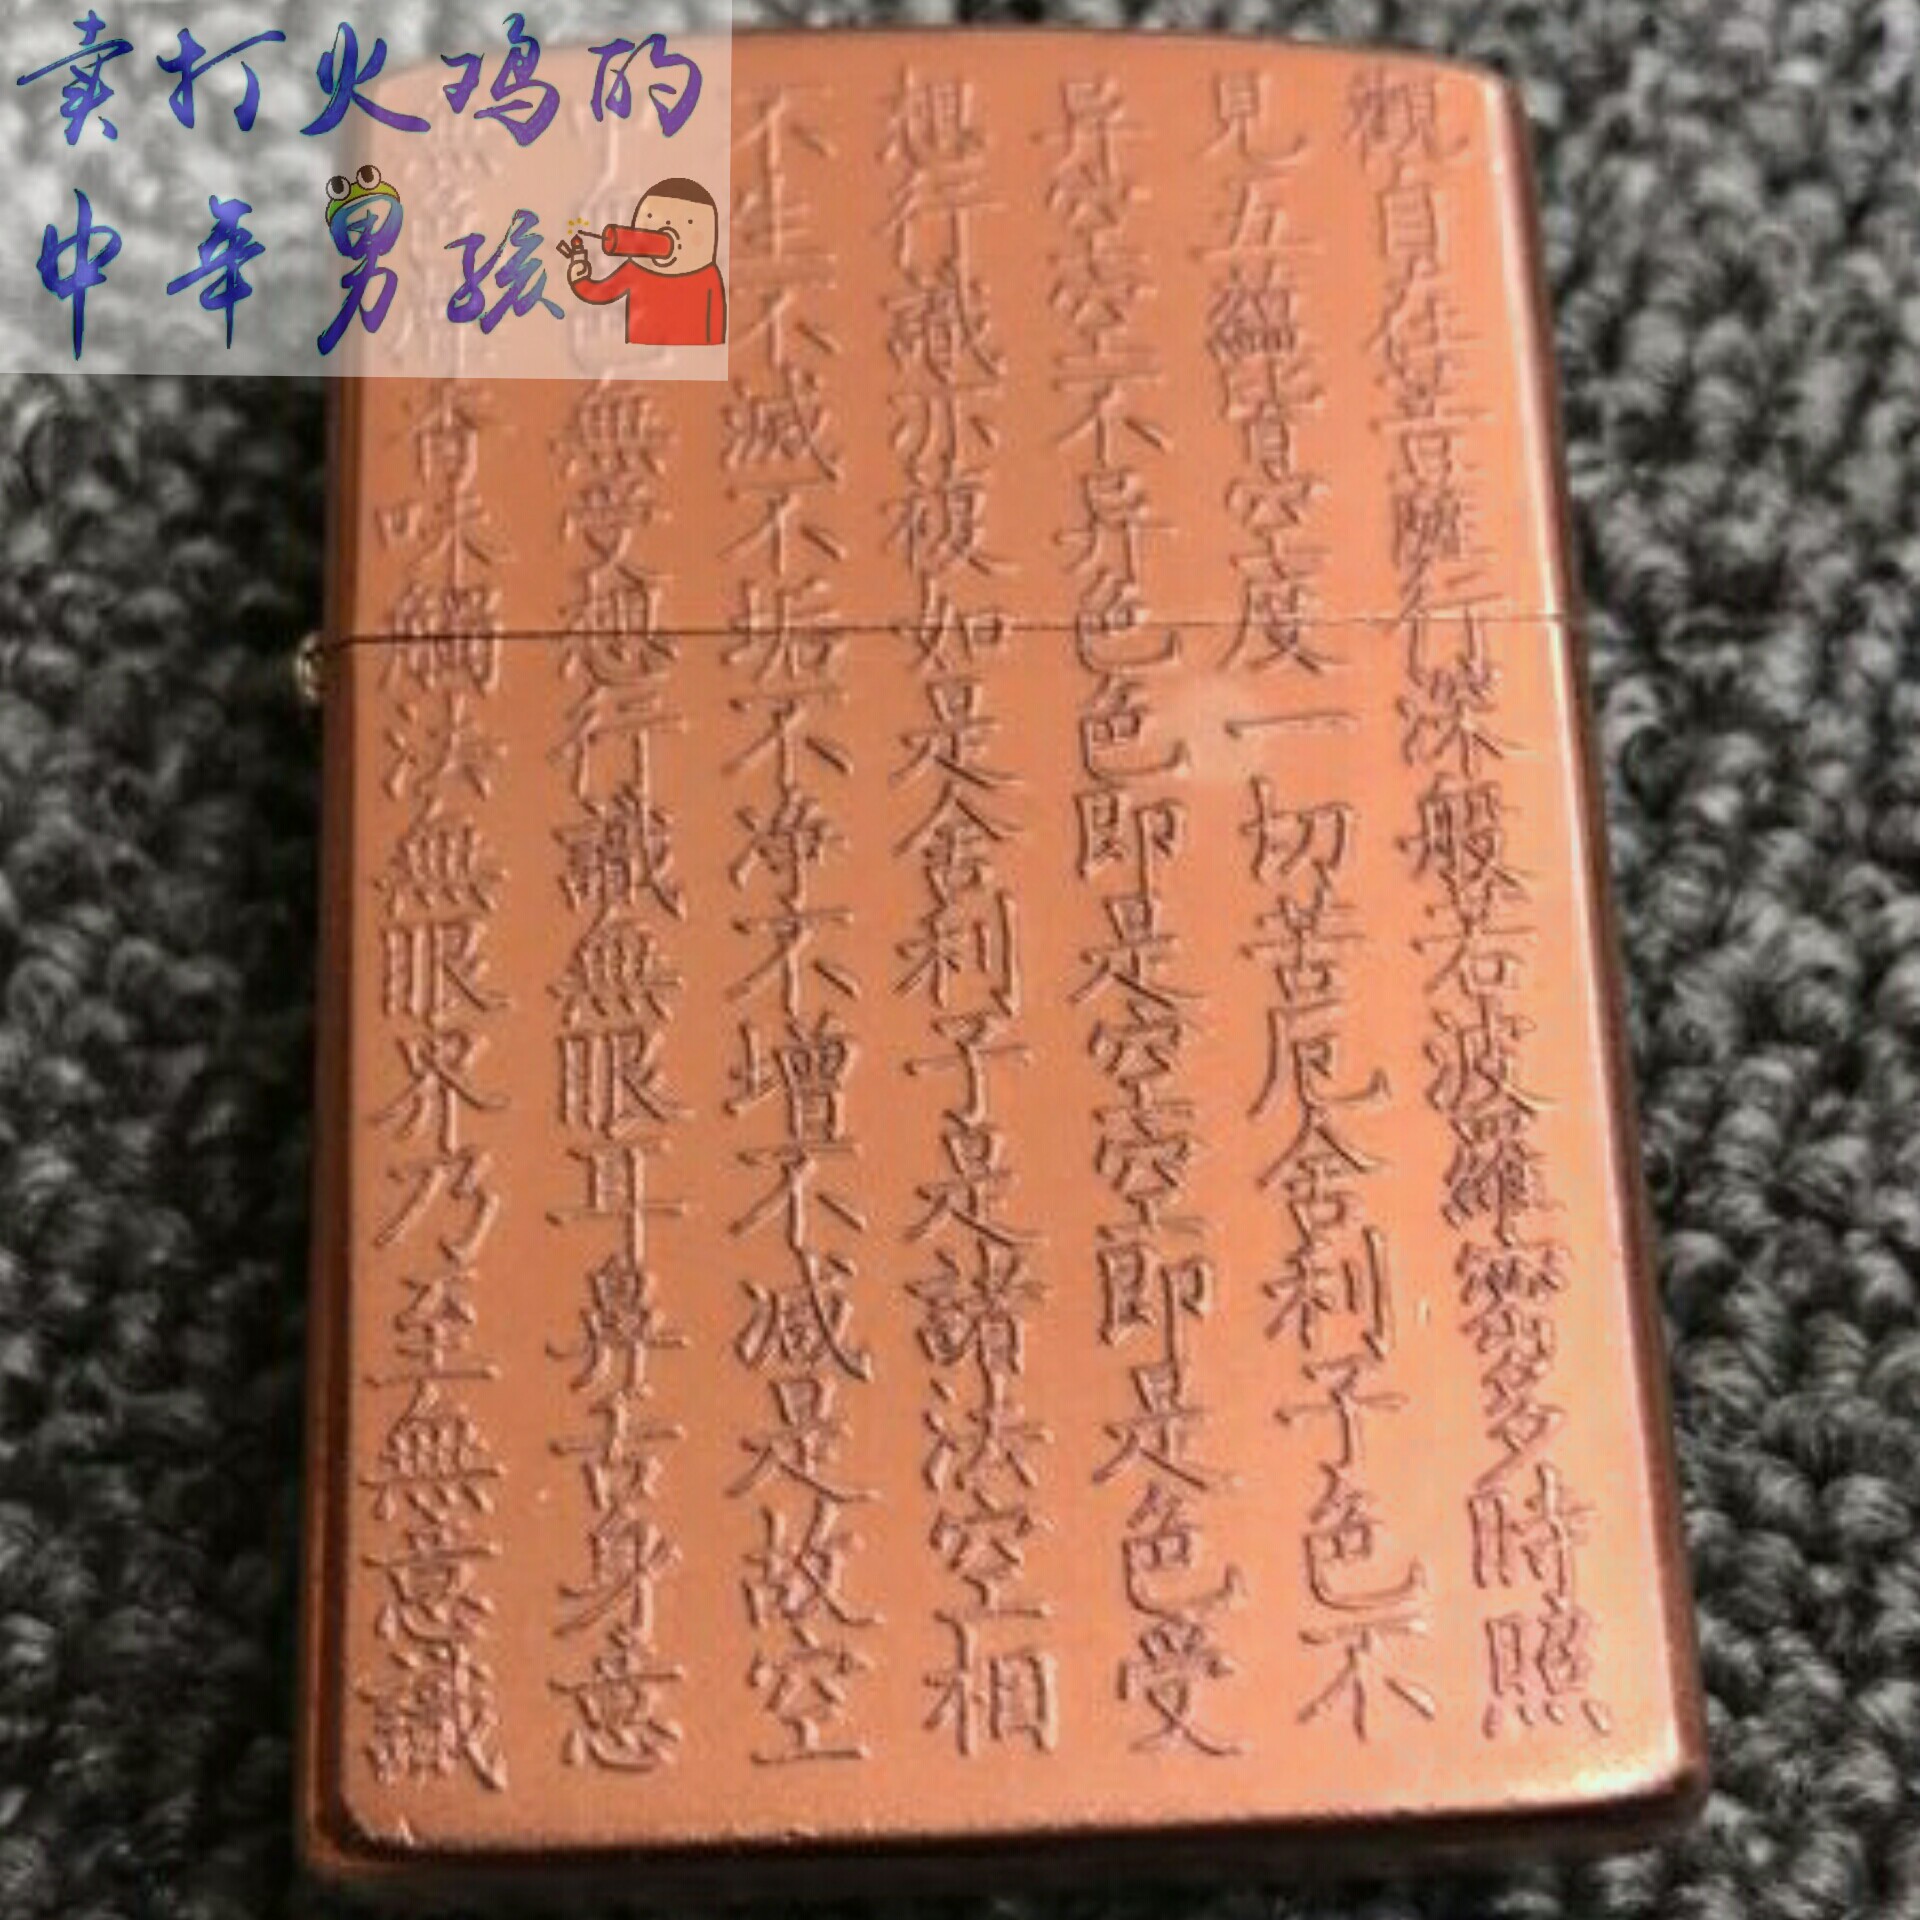 卖打火鸡的
中华男孩
觀自在菩薩行深般若波羅蜜多時照
見五蘊皆空度一切苦厄舍利子色不
异空空不异色色即是空空即是色受
想行識亦複如是舍利子是諸法空相
不生不滅不垢不净不增不减是故空
色無受想行識無眼耳鼻舌身意
香味觸法無眼界乃至無意識